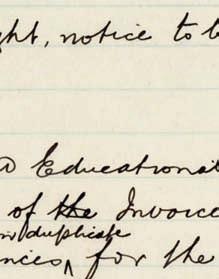 ght, notice to b
Educational
of the Invoice
in duplicate
nces, for the